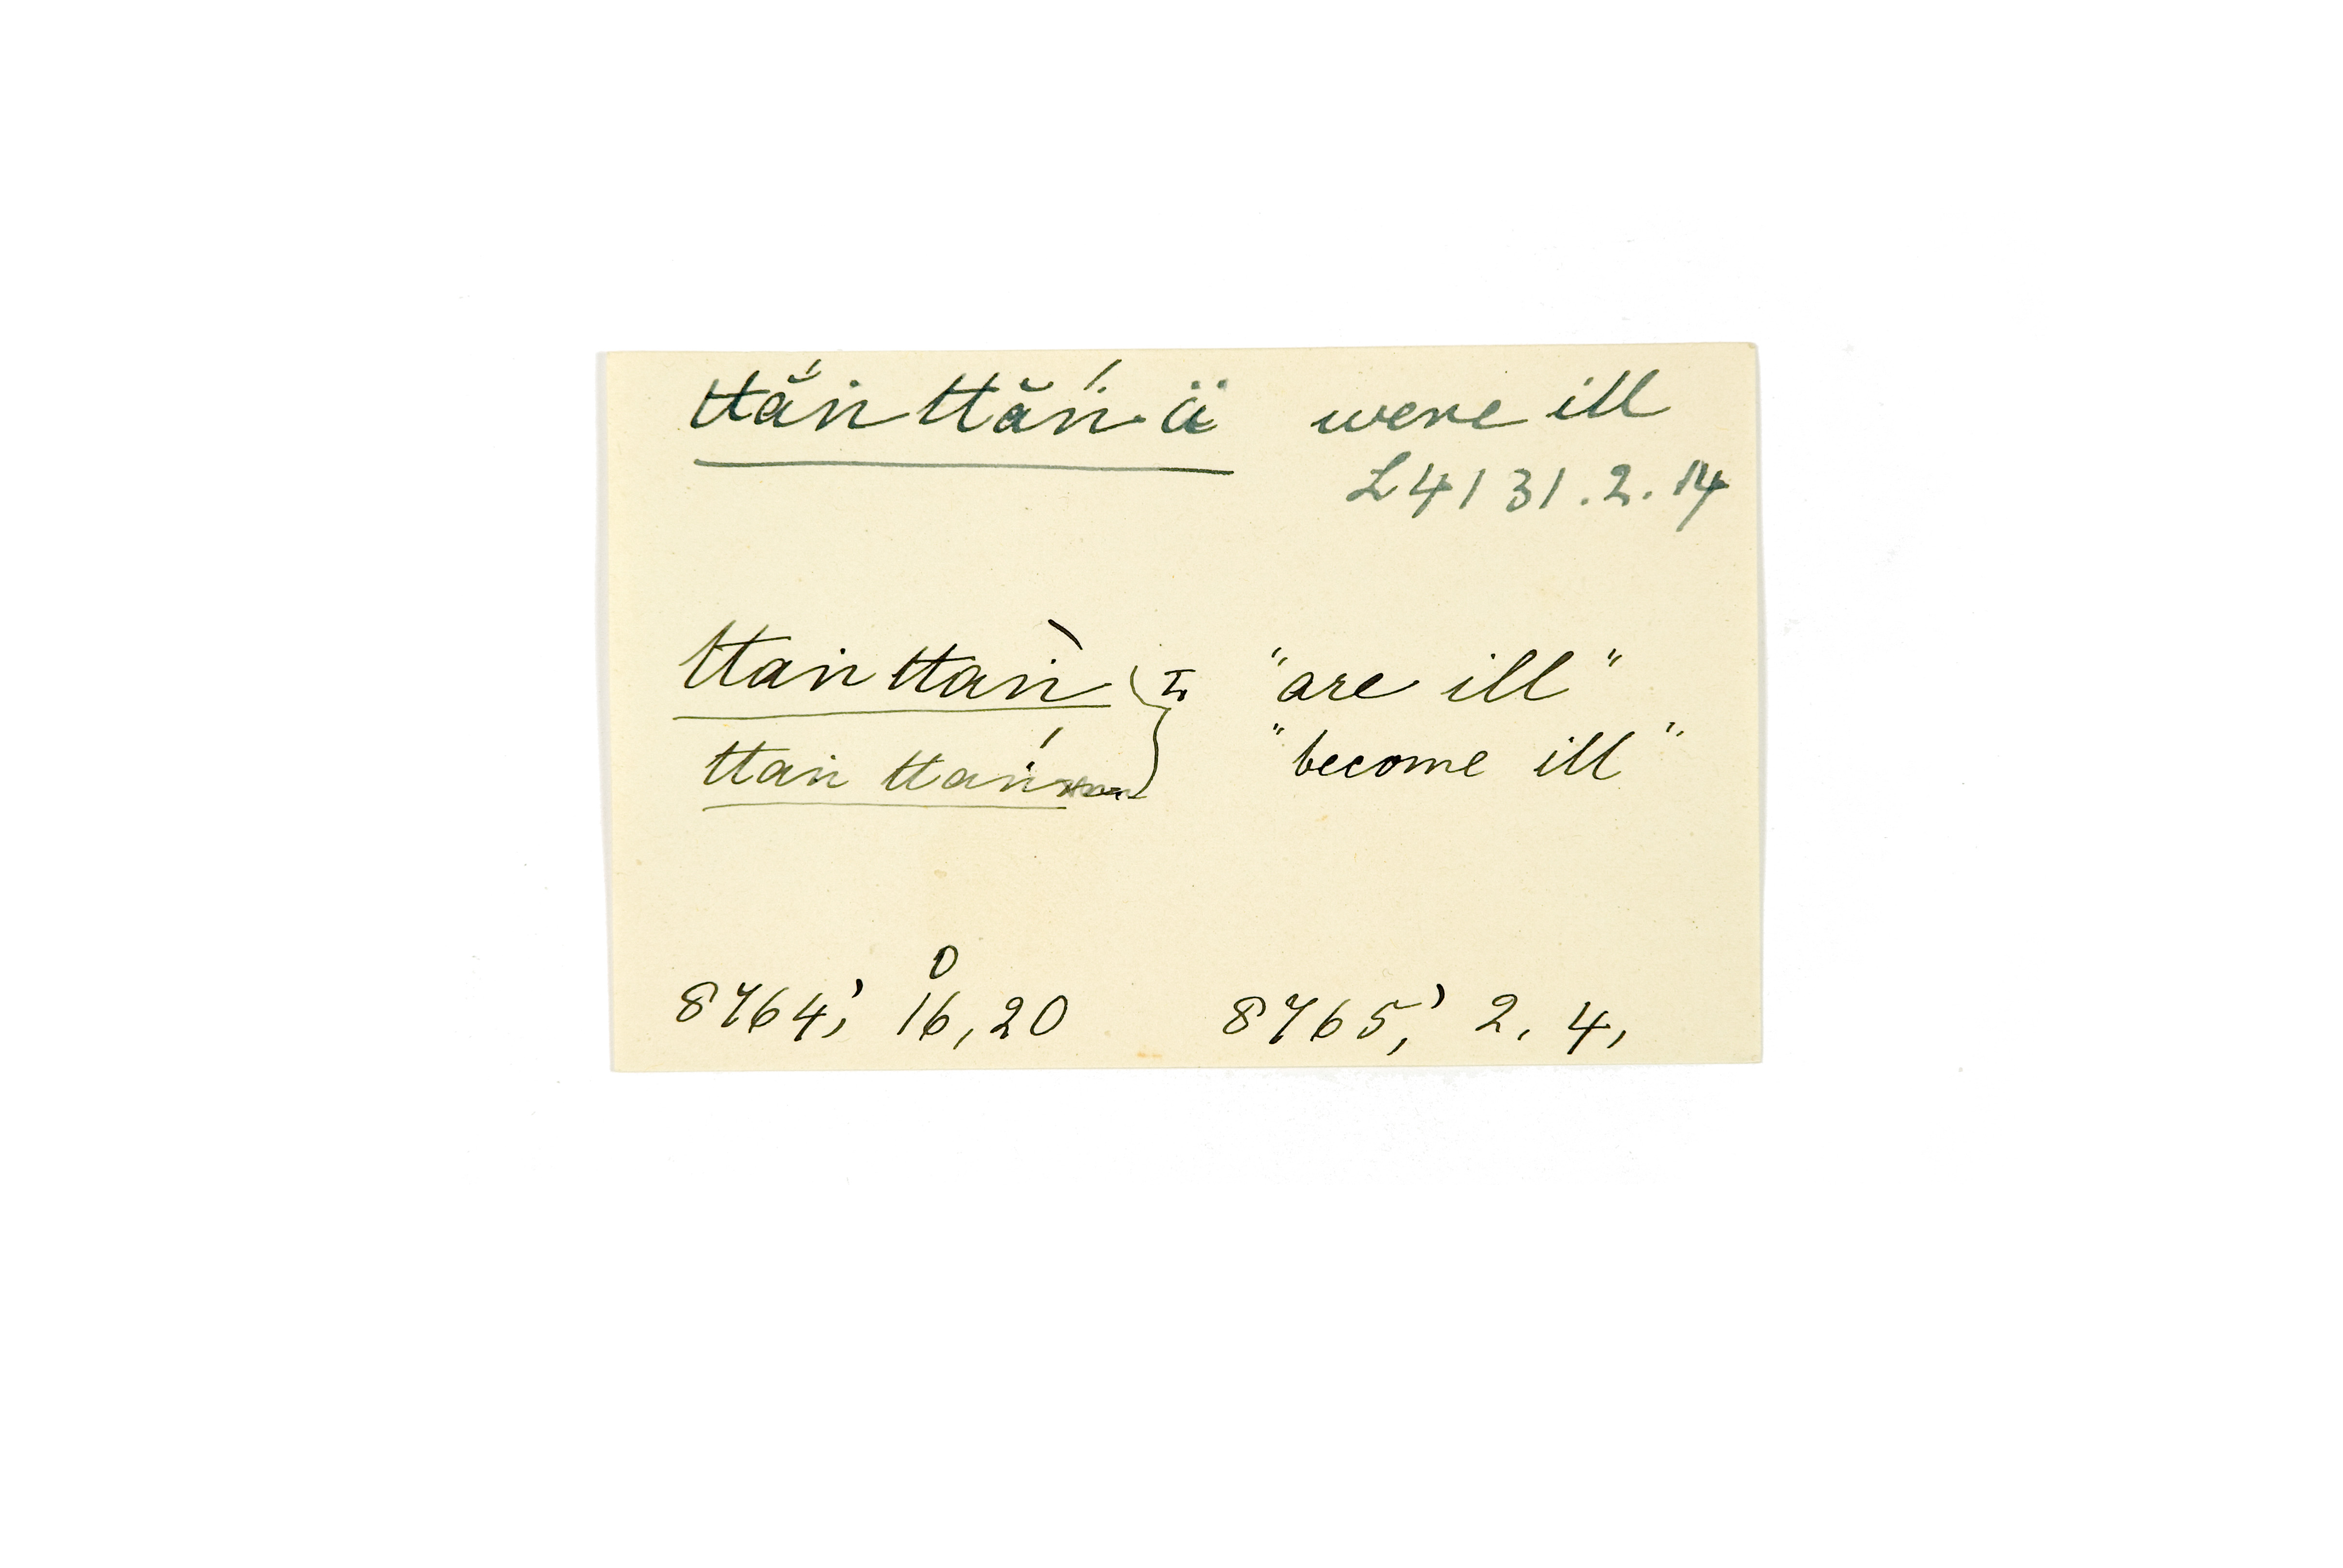 ttắṅ ttăṅ́.ä were ill
L 4131.2.14
ttaṅ ttaṅ̀ "are ill"
ttaṅ ttaṅ́ "become ill"
0
8764; 16, 20 8765; 2. 4,